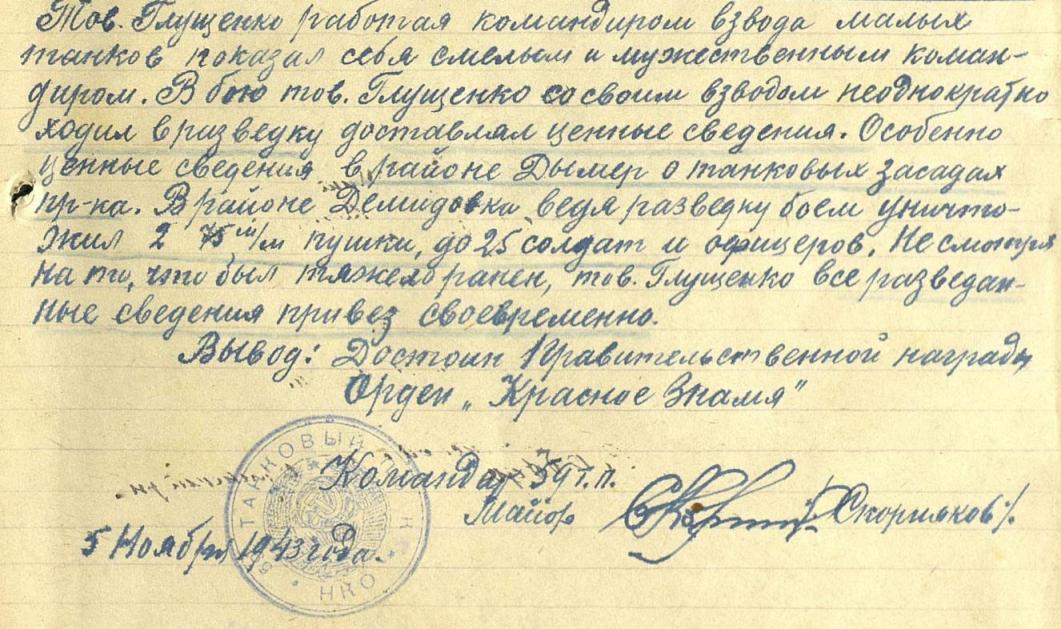 Тов. Глущенко работая командиром взвода малых
танков показал себя смелым и мужественным коман-
диром. В бою тов. Глущенко со своим взводом неоднократно
ходил в разведку доставлял ценные сведения. Особенно
ценные сведения в районе Дымер о танковых засадах
пр-ка. В районе Демидовка ведя разведку боем уничто-
жил 2 75 м/м пушки, до 25 солдат и офицеров. Не смотря
на то, что был тяжело ранен, тов. Глущенко все разведан-
ные сведения привез своевременно.
Вывод: Достоин Правительственной награды
Орден „Красное Знамя"
Командир 59 т.п.
Майор /Скорняков/.
5 Ноября 1943 года.
ТАНКОВЫЙ
НКО